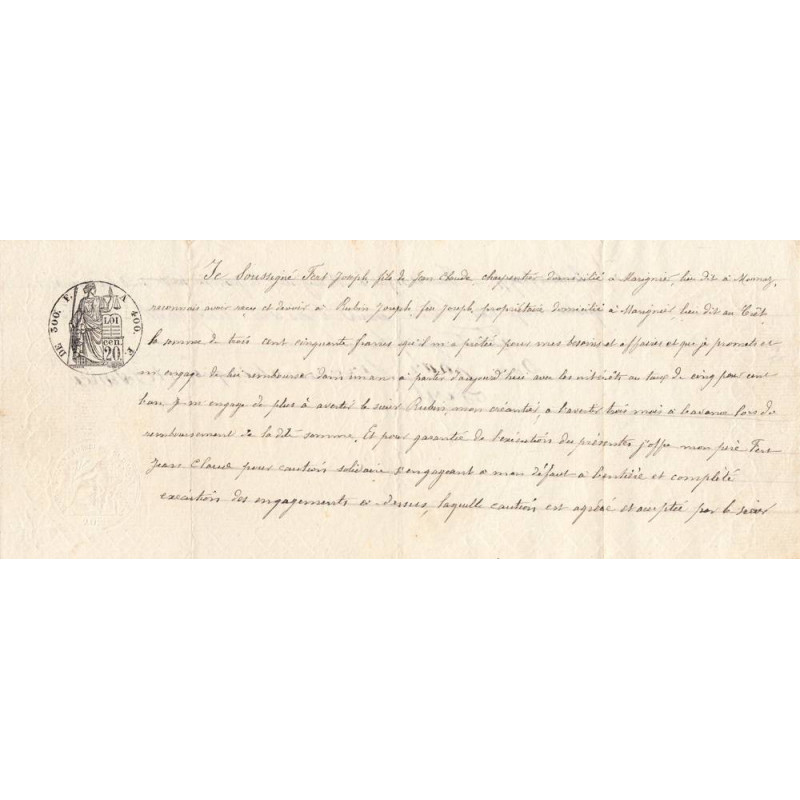 Je Soussigné Fert Joseph, fils de Jean Claude, charpentier domicilié à Marignier, lieu dit à
reconnais avoir reçu et devoir à Rubin Joseph feu Joseph, propriétaire domicilié à Marignier, lieu dit au
la somme de trois cent cinquante francs qu'il m'a prêtée pour mes besoins et affaires et que je promets et
m'engage de lui rembourse dans un an à partir d'aujourd'hui avec les intérêts au taux de cinq pour cent
l'an, je m'engage de plus à avertir le sieur Rubin, mon créantier, a l'avertir trois mois a lavance lors du
remboursement de la dite somme. Et pour garantie de l'exécution des présentes, j'offre mon père Fert
Jean Claude pour caution solidaire s'engageant a mon défaut à l'entière et complété
exécution des engagements ci Dessus, laquelle caution est agréé et acceptée par le sieur
DE 300. F. A 400. F.
LOI
CEN.
20